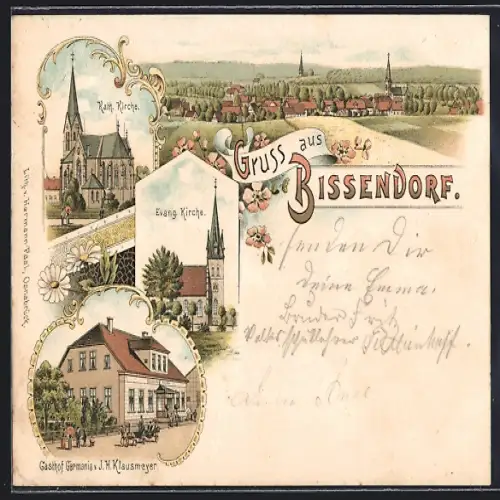 Kath. Kirche.
Gruss aus
BISSENDORF.
Evang. Kirche.
senden Dir
Deine Emma.
Bruder Fritz
Volksschullehrer
Gasthof Germania v. J. H. Klausmeyer.
Lith. v. Hermann Osnabrück.